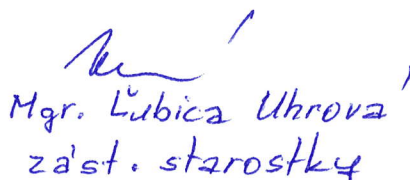 Mgr. Ľubica Uhrová
zást. starostky